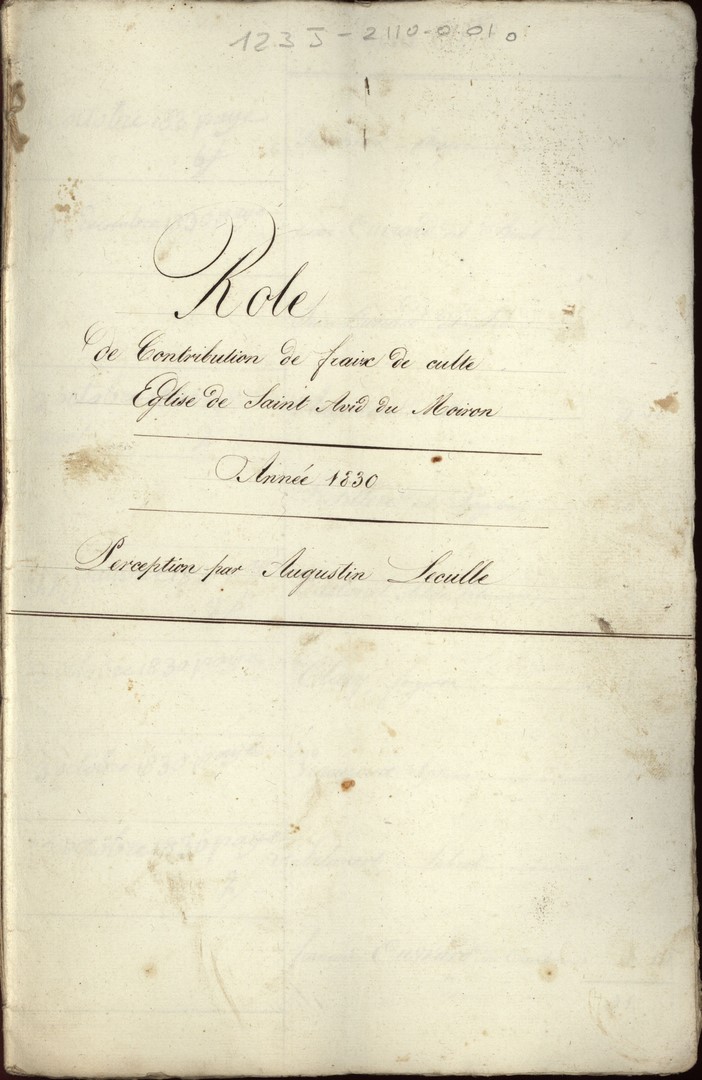 123 J - 2110-0010
Role
de Contribution de fraix de culte
Eglise de Saint Avid du Moiron
Année 1830
Perception par Augustin Leculle